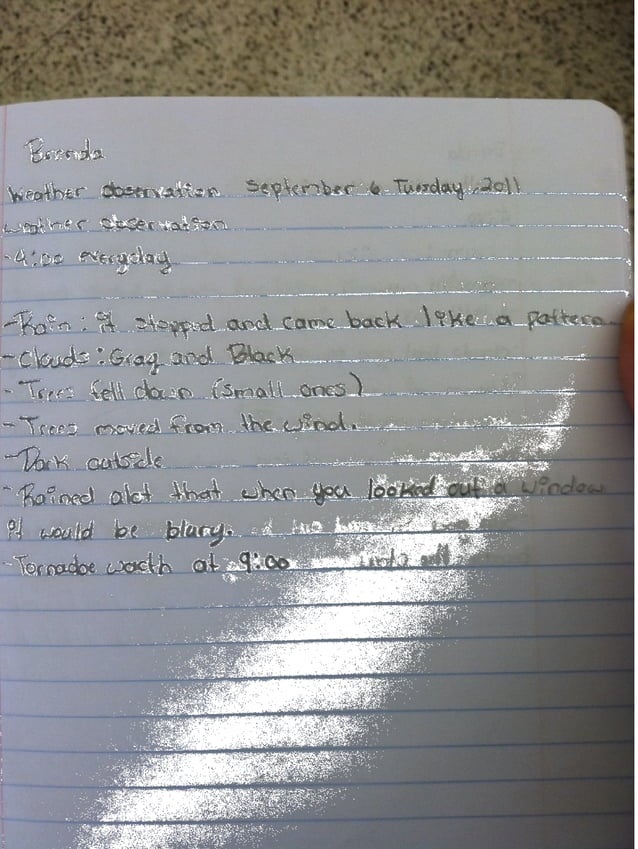 Brenda
Weather observation September 6 Tuesday, 2011
weather observation
-4:00 everyday
-Rain: it stopped and came back like a pattern
-Clouds: Gray and Black
-Trees fell down (small ones)
-Trees moved from the wind.
-Dark outside
-Rained alot that when you looked out a window
it would be blury.
-Tornadoe wacth at 9:00